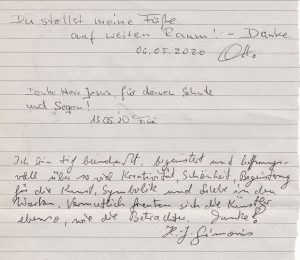 Du stellst meine Füße
auf weiten Raum! - Danke
06.05.2020 Otto
Danke Herr Jesus, für deinen Schutz
und Segen!
13.05.20
Ich bin tief beeindruckt, begeistert und
voll über so viel Kreativität, Schönheit, Begeisterung
für die Kunst, Symbolik und Liebe in den
Werken. Vermutlich freuten sich die Künstler
ebenso, wie die Betrachter. Danke!
H. J.